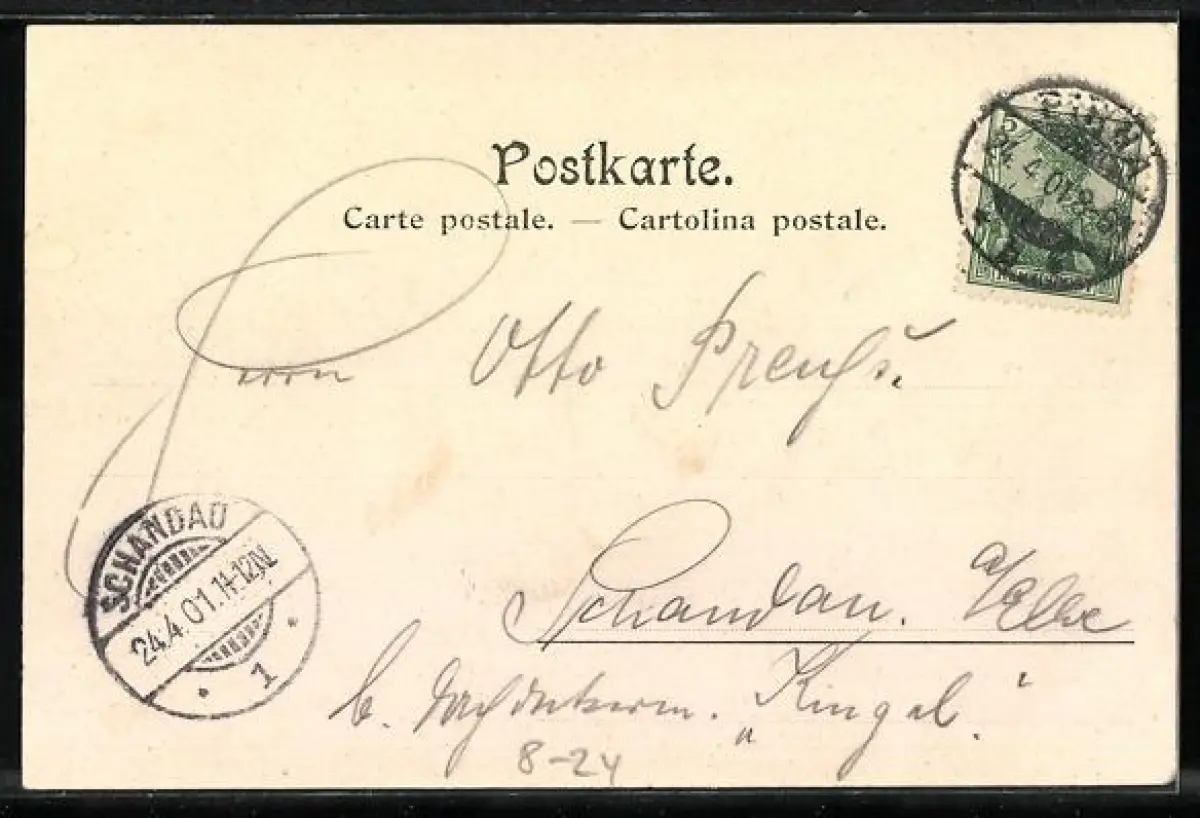 Postkarte.
Carte postale. — Cartolina postale.
PIRNA
24.4.01.8-9
Herrn Otto Preuß.
Schandau. a/Elbe
b. Dachdeckerm. „Ringel."
SCHANDAU
24.4.01.11-12N.
1
8-24